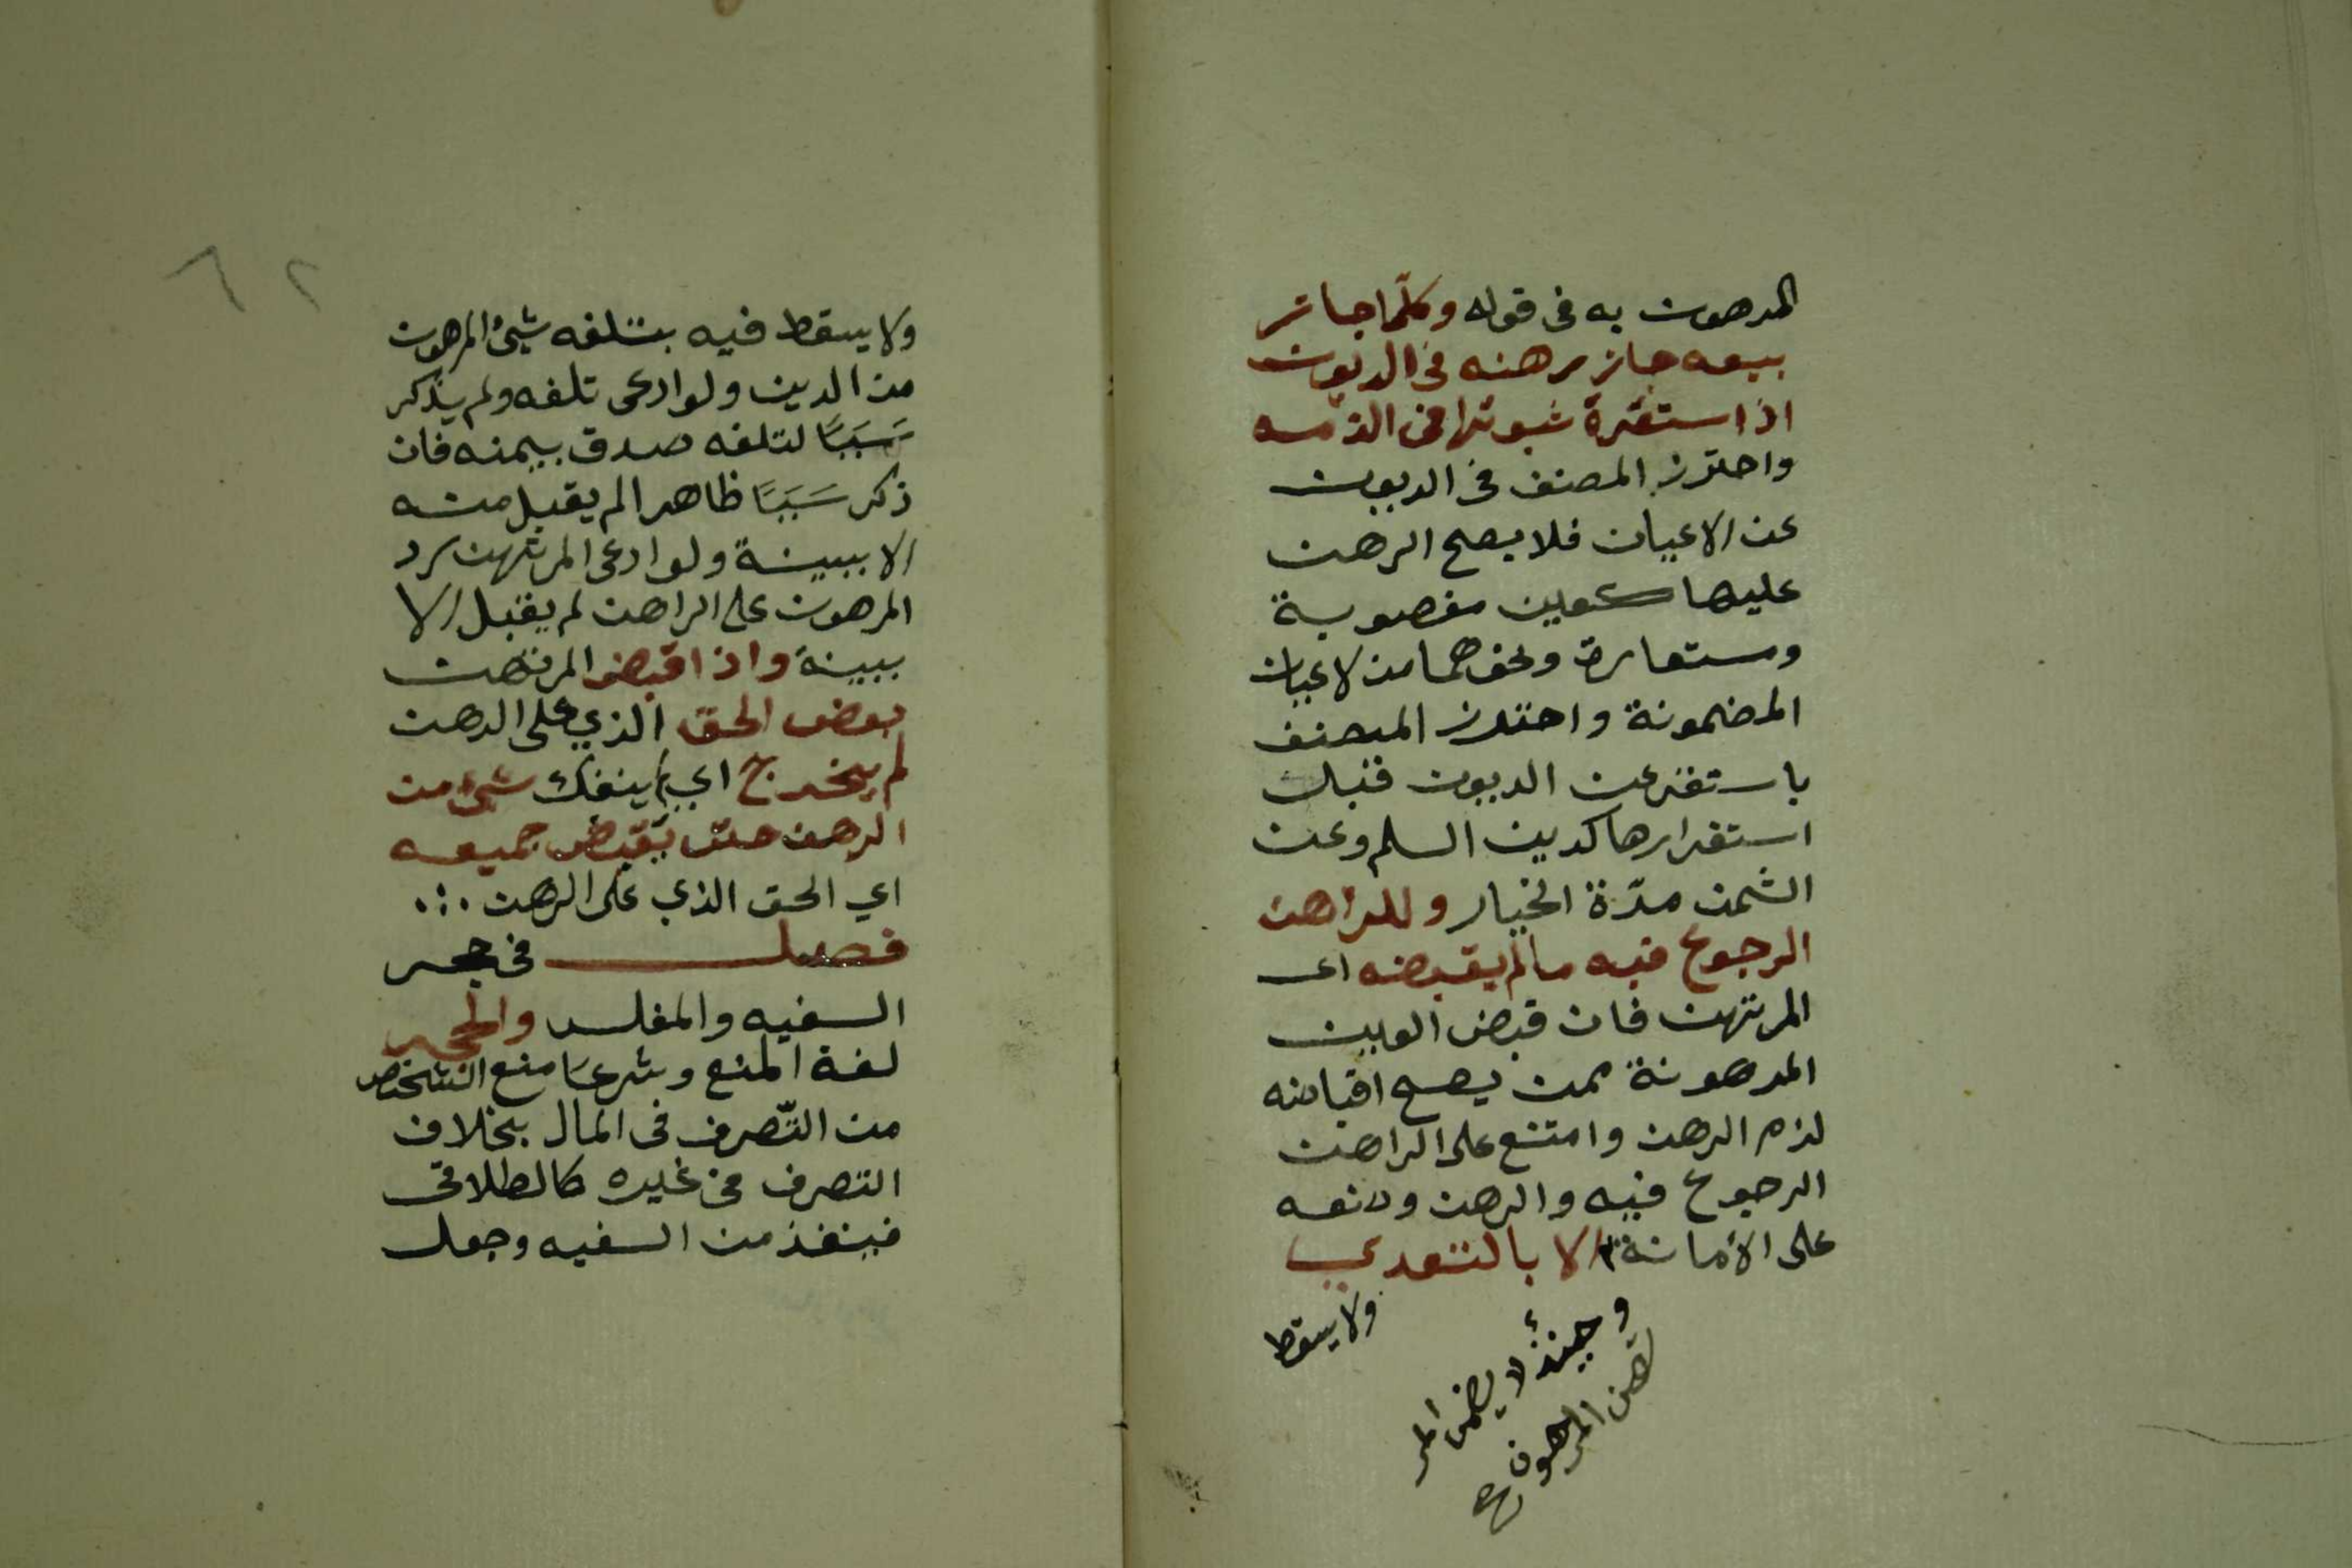 المرهون به فى قوله وكلما جاز
بيعه جاز رهنه فى الديون
اذا استقرة ثبوتها فى الذمه
واحترز المصنف فى الديون
عن الاعيان فلا يصح الرهن
عليها كعين مغصوبة
ومستعارة ونحوهما من لاعيان
المضمونة واحترز المصنف
باستقر عن الديون قبل
استقرارها كدين السلم وعن
الثمن مدّة الخيار وللراهن
الرجوع فيه مالم يقبضه اى
المرتهن فان قبض العين
المرهونة ممن يصح اقباضه
لزم الرهن وامتنع على الراهن
الرجوع فيه والرهن وضعه
على الأمانة الا بالتعدي
وحينئذ لا يضمن المر
تهن المرهون صح
ولا يسقط
٦٢
ولا يسقط فيه بتلفه شئ المرهون
من الدين ولو ادعى تلفه ولم يذكر
سَبَبًا لتلفه صدق بيمنه فان
ذكر سَبَبًا ظاهرا لم يقبل منه
الا ببينة ولو ادعى المرتهن رد
المرهون على الراهن لم يقبل الا
ببينة واذا قبض المرتهن
بعض الحق الذي على الرهن
لم يخرج اي ينفك شئ من
الرهن حتى يقبض جميعه
اي الحق الذي على الرهن
فصل فى حجر
السفيه والمفلس والحجر
لغة المنع وشرعا منع الشخص
من التّصرف فى المال بخلاف
التصرف فى غيره كالطلاق
فينفذ من السفيه وجعل